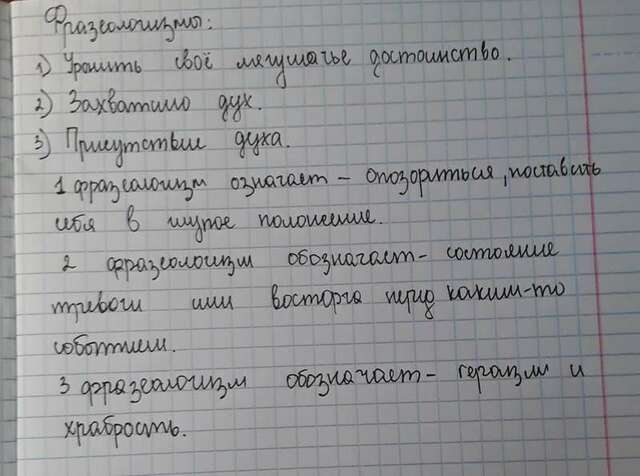 Фразеологизмы:
1) Уронить своё лягушачье достоинство.
2) Захватило дух.
3) Присутствие духа.
1 фразеологизм означает – опозориться, поставить
себя в глупое положение.
2 фразеологизм обозначает – состояние
тревоги или восторга перед каким-то
событием.
3 фразеологизм обозначает – героизм и
храбрость.